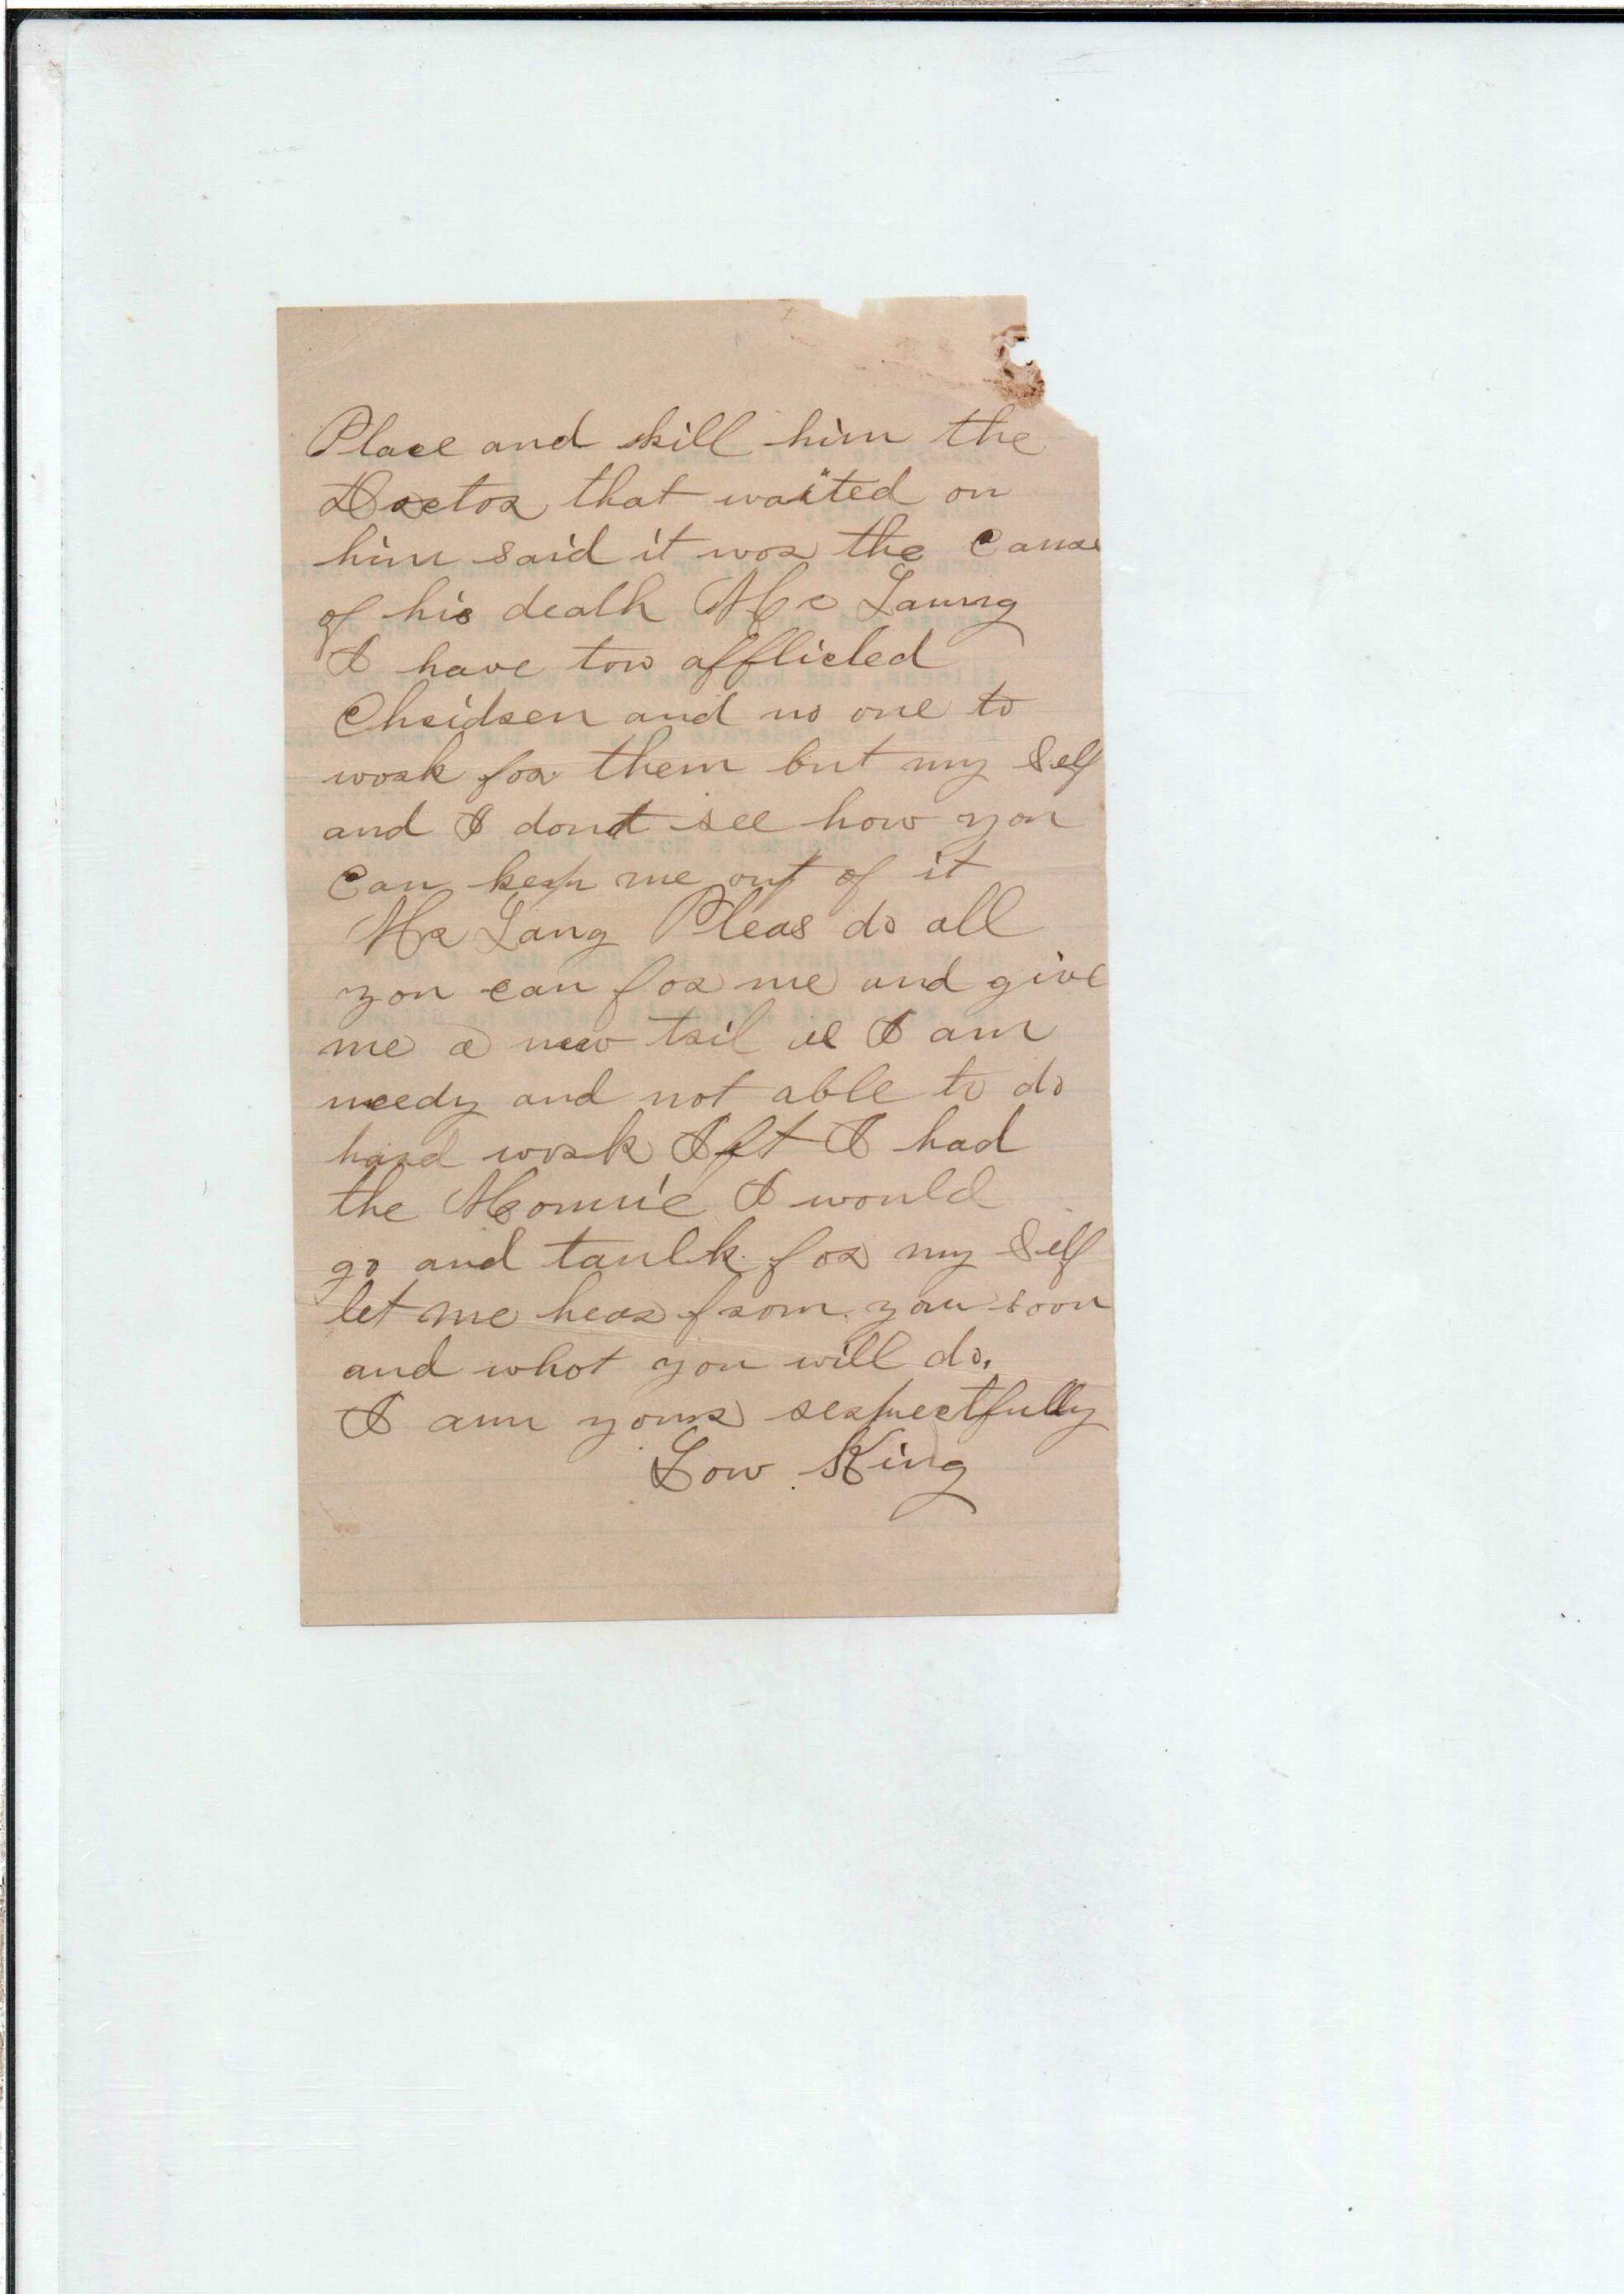 Place and kill him the
Doctor that waited on
him said it wos the Cause
of his death Mr Laung
I have tow afflicted
Chridren and no one to
work for them but my Self
and I dont see how you
Can keep me out of it
Mr Lang Pleas do all
you can for me and give
me a new tril I am
needy and not able to do
hard work Ift I had
the Monnie I would
go and taulk for my Self
let me hear from you soon
and whot you will do.
I am yours respectfully
Low King